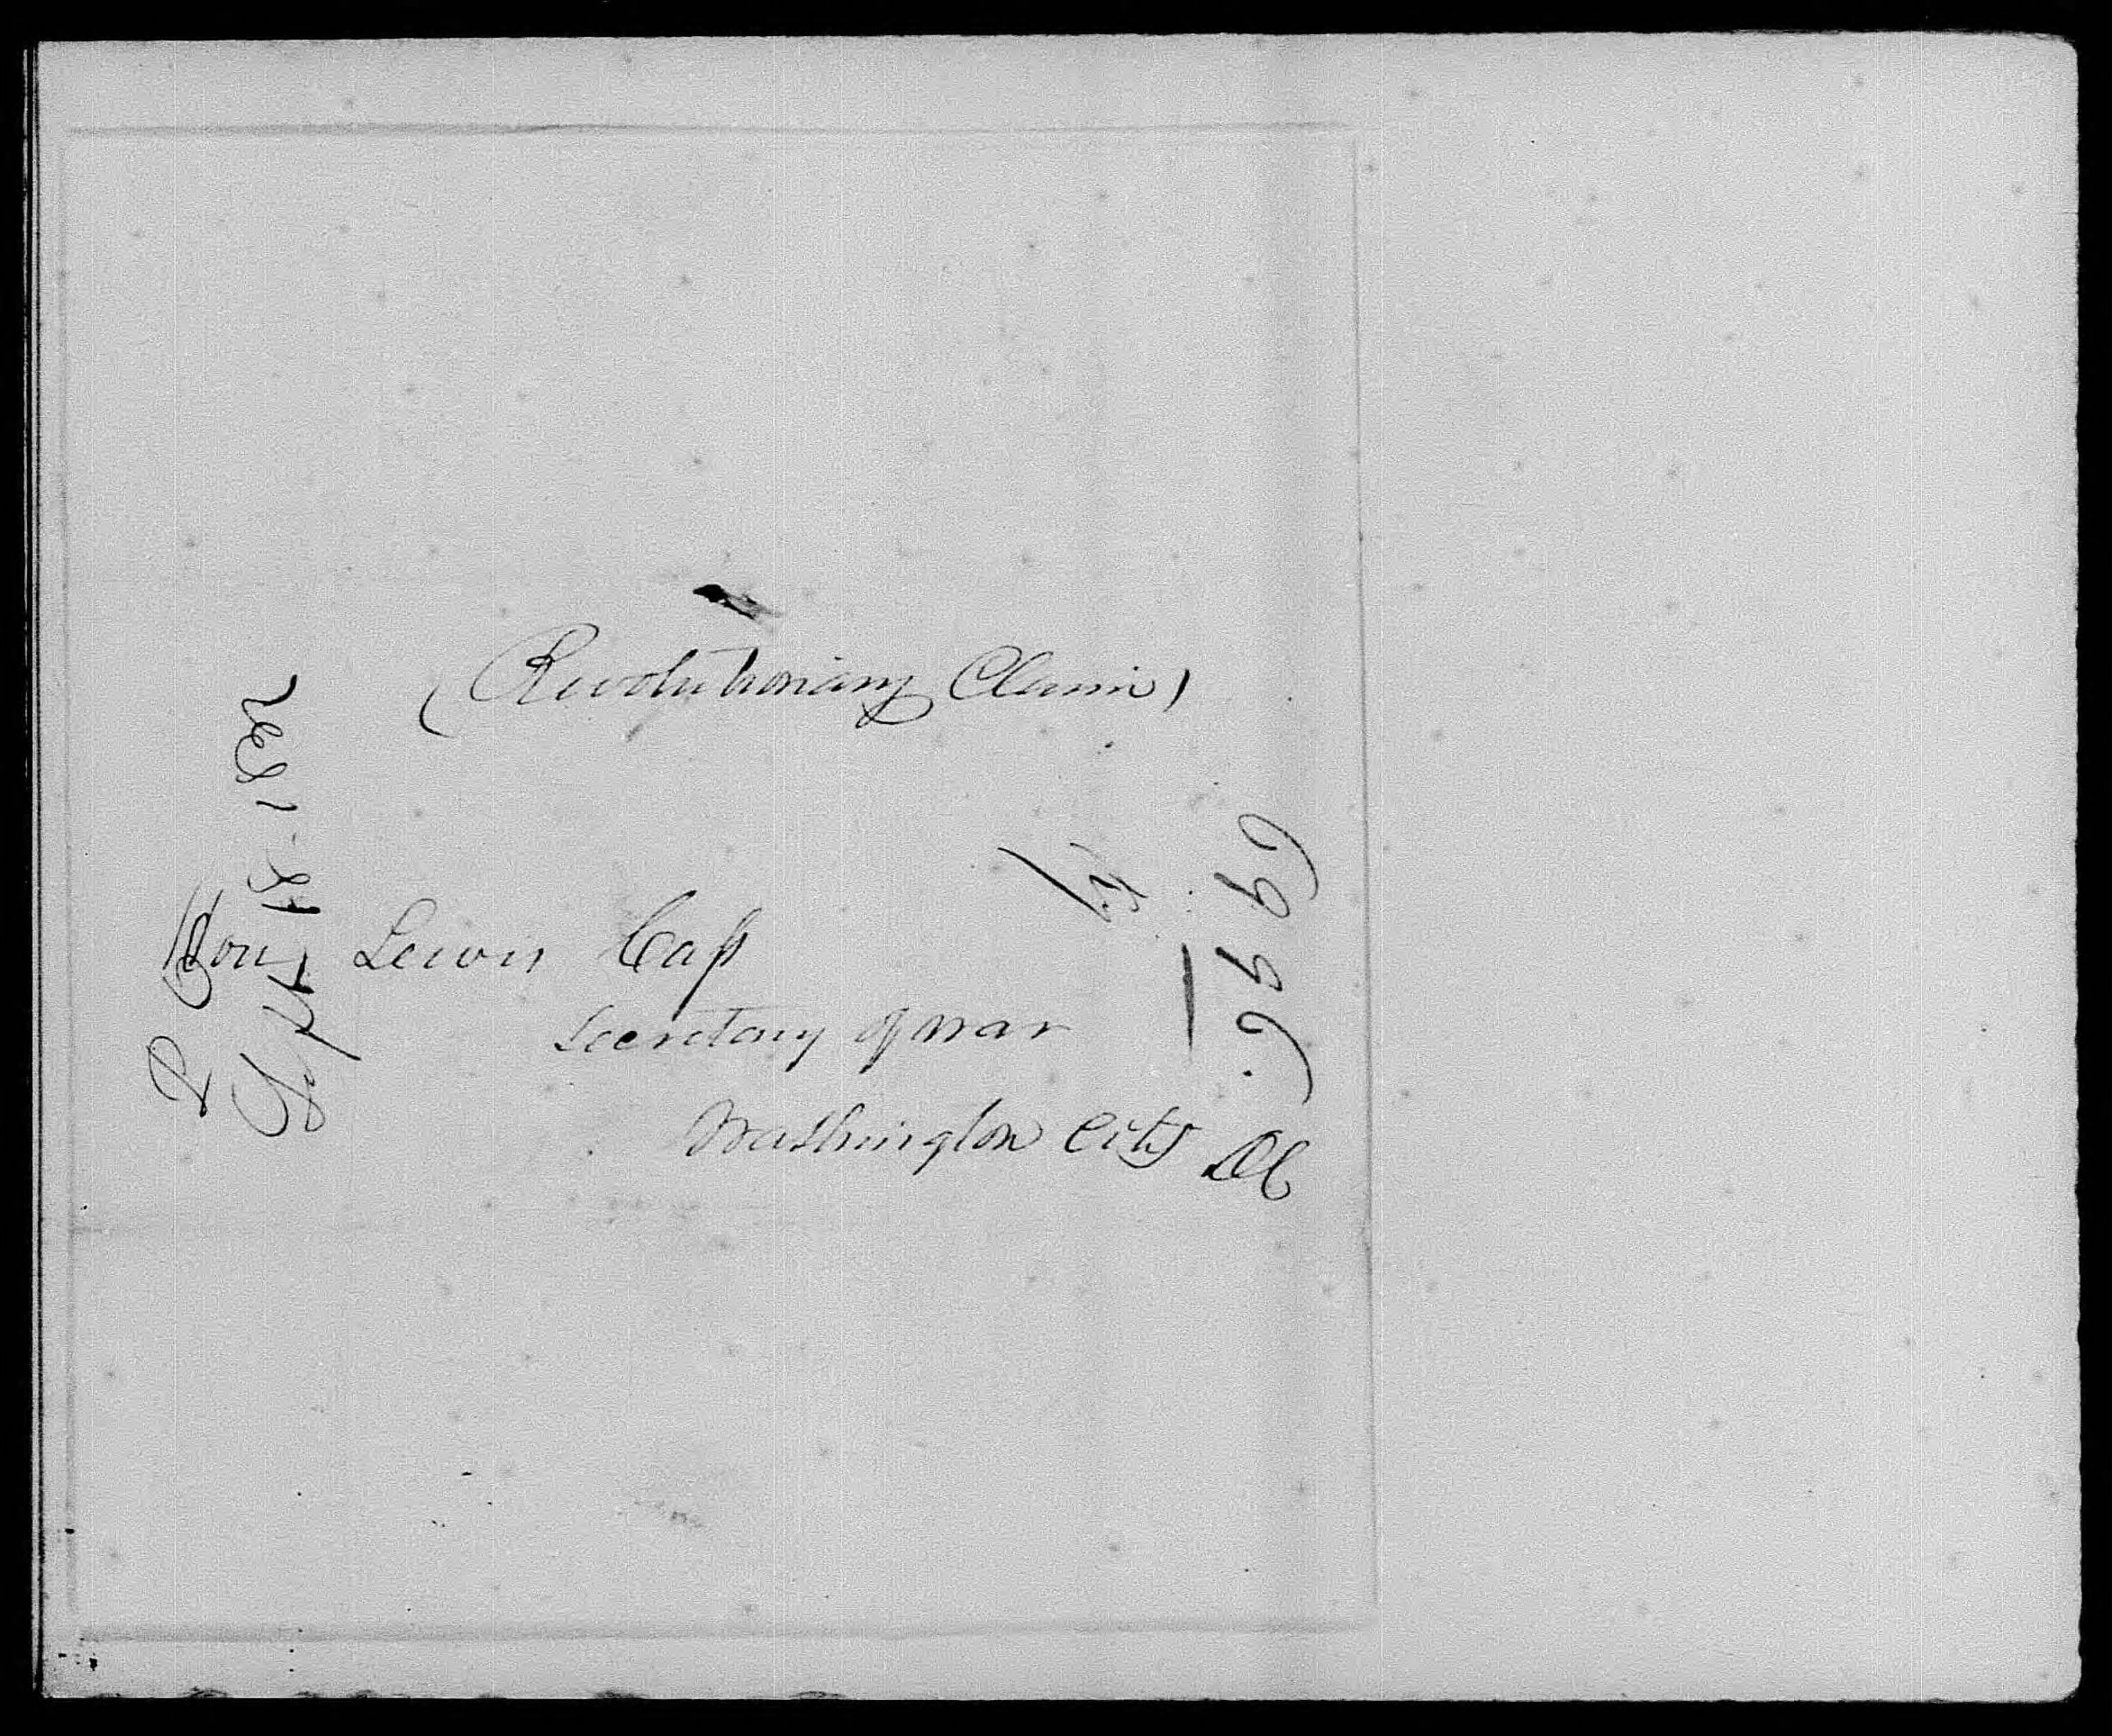 (Revolutionary Claim)
Hon. Lewis Cass
Secretary of war
Washington City DC
Sept 14. 1832